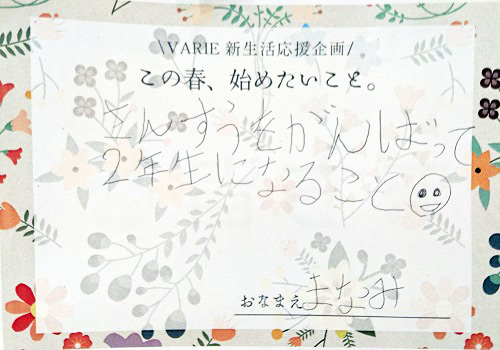 \VARIE 新生活応援企画/
この春、始めたいこと。
さんすうをがんばって
2年生になること
おなまえ まなみ